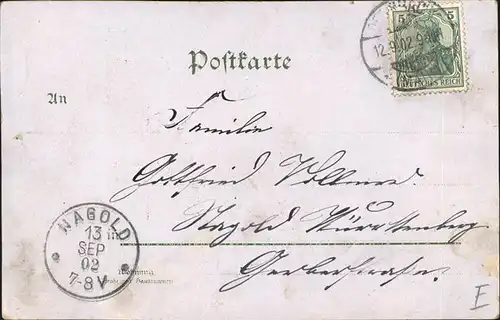 5 5
12.9.02.9
DEUTSCHES REICH
Postkarte
An
Familie
Gottfried Vollmer.
Nagold Württemberg
Gerberstrasse.
NAGOLD
13
SEP
02
7-8 V
E